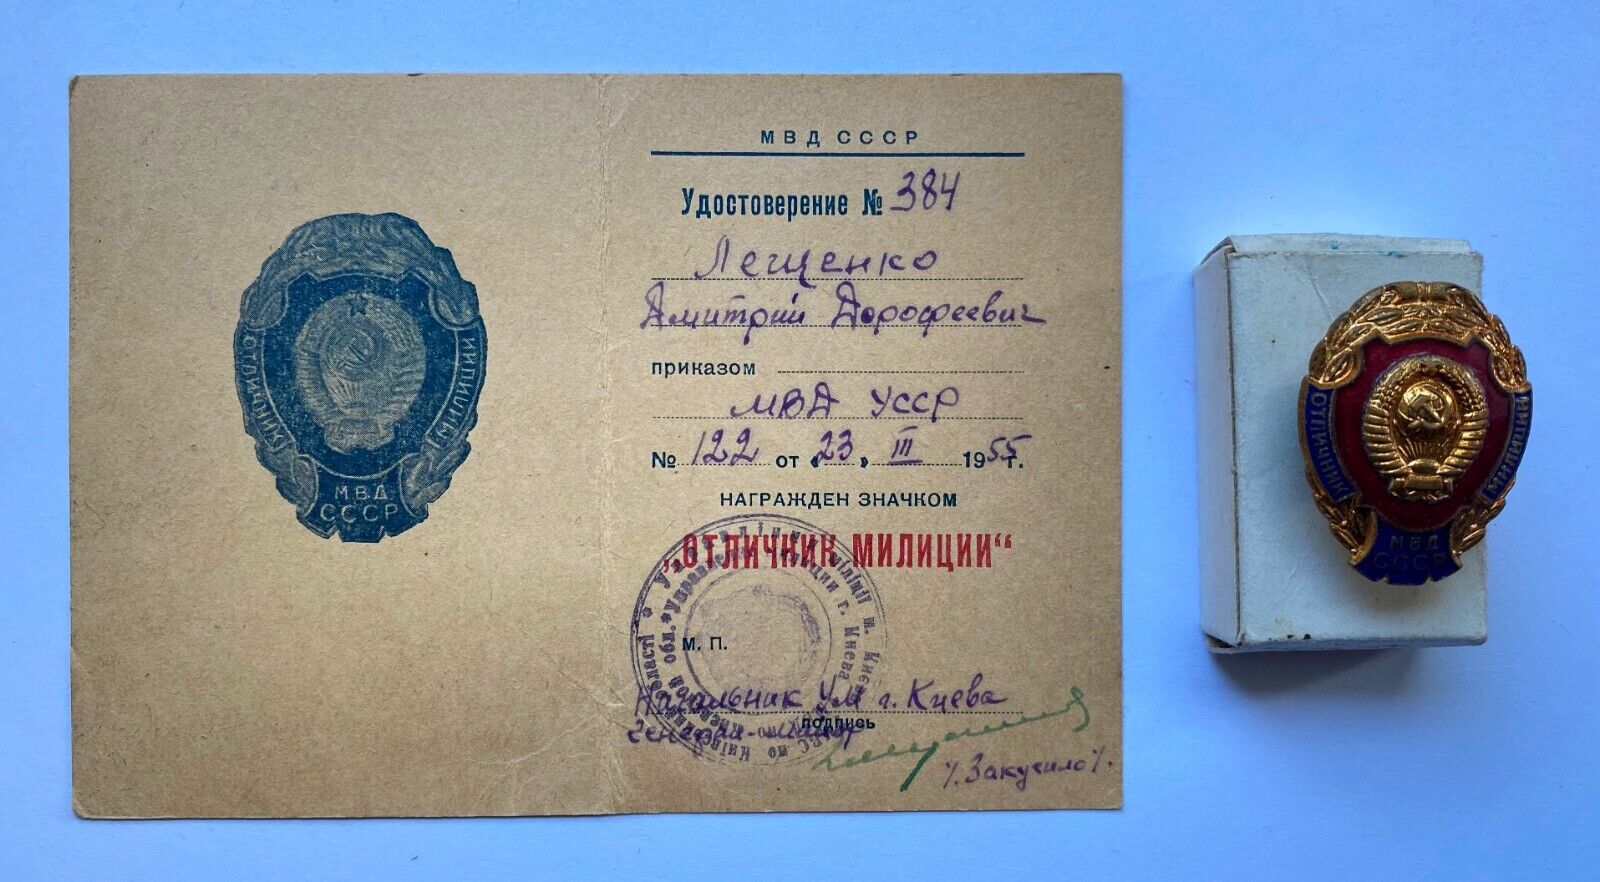 ОТЛИЧНИК
МИЛИЦИИ
МВД
СССР
МВД СССР
Удостоверение № 384
Лещенко
Дмитрий Дорофеевич
приказом
МВД УССР
№ 122 от «23» III 1955 г.
НАГРАЖДЕН ЗНАЧКОМ
„ОТЛИЧНИК МИЛИЦИИ“
міліції м.
г. Киева
М. П.
Начальник УМ г. Киева
подпись
генерал-майор
/. Закусило /.
ОТЛИЧНИК
МИЛИЦИИ
МВД
СССР